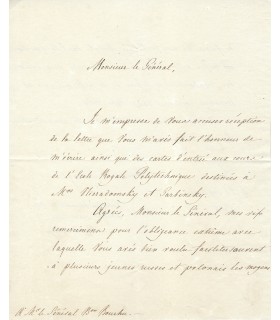 Monsieur le Général,
Je m'empresse de Vous accuser réception
de la lettre que Vous m'avés fait l'honneur de
m'écrire ainsi que des cartes d'entrée aux cours
de l'École Royale Polytechnique destinées à
Agréés, Monsieur le Général, mes
remercimens pour l'obligeance extrême avec
laquelle Vous avés bien voulu faciliter
à plusieurs jeunes russes et polonais les moyens
le Général Bon